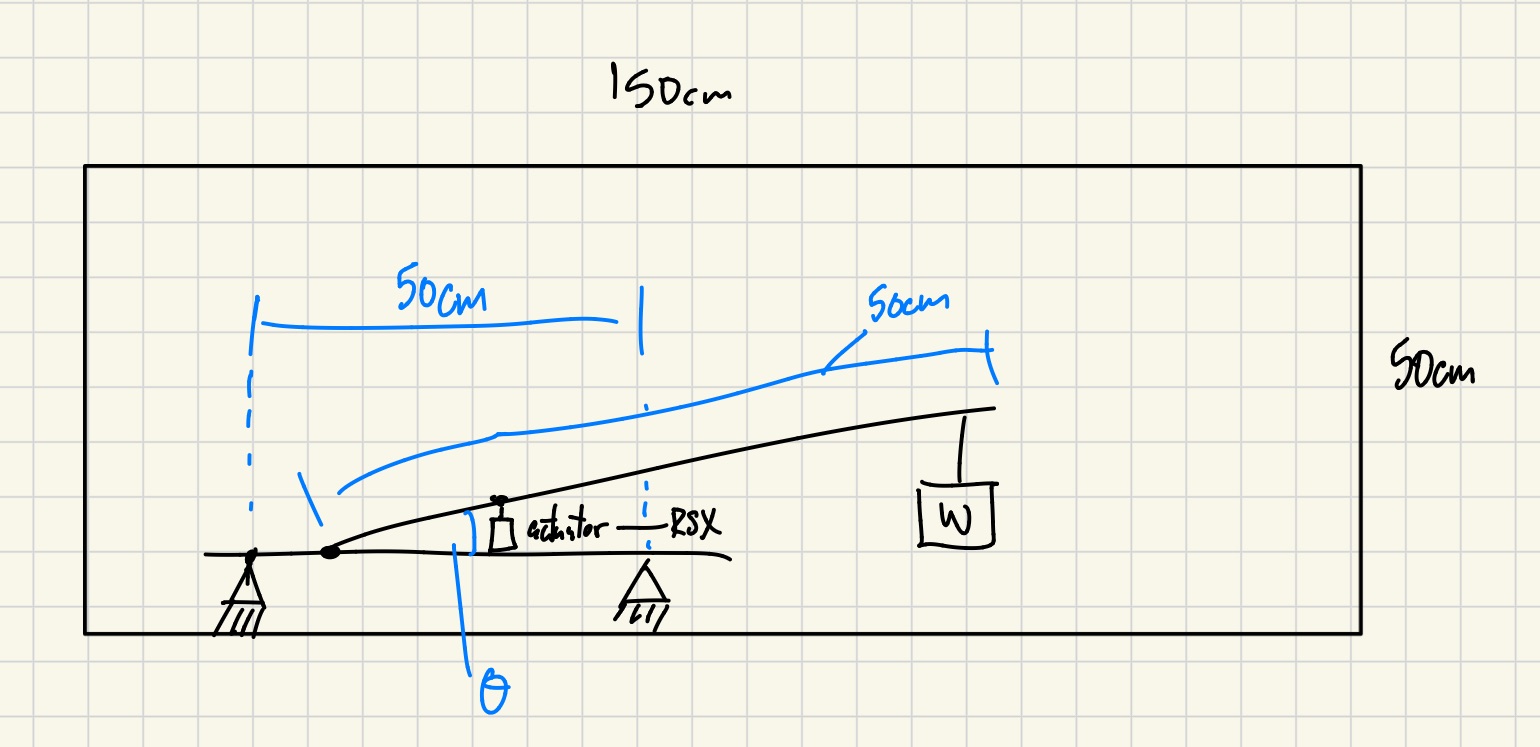 150cm
50cm
50cm
50cm
actuator — RSX
W
θ